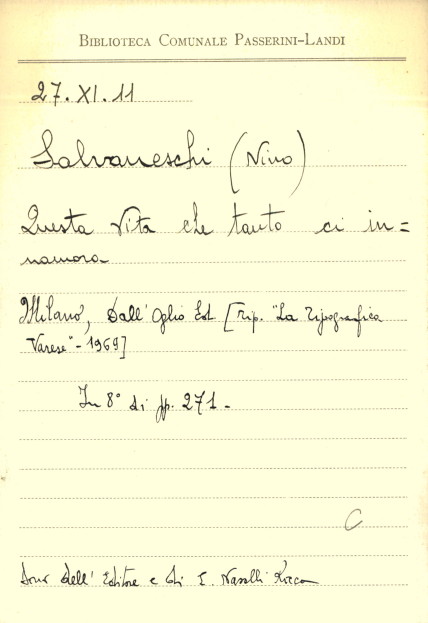 BIBLIOTECA COMUNALE PASSERINI-LANDI
27. XI. 11
Salvaneschi (Nino)
Questa vita che tanto ci in=
namora
Milano, Dall'Oglio Ed. [Tip. "La Tipografica
Varese" - 1969]
In 8° di pp. 271 -
C
Dono dell' Editore e di I. Naselli Rocca